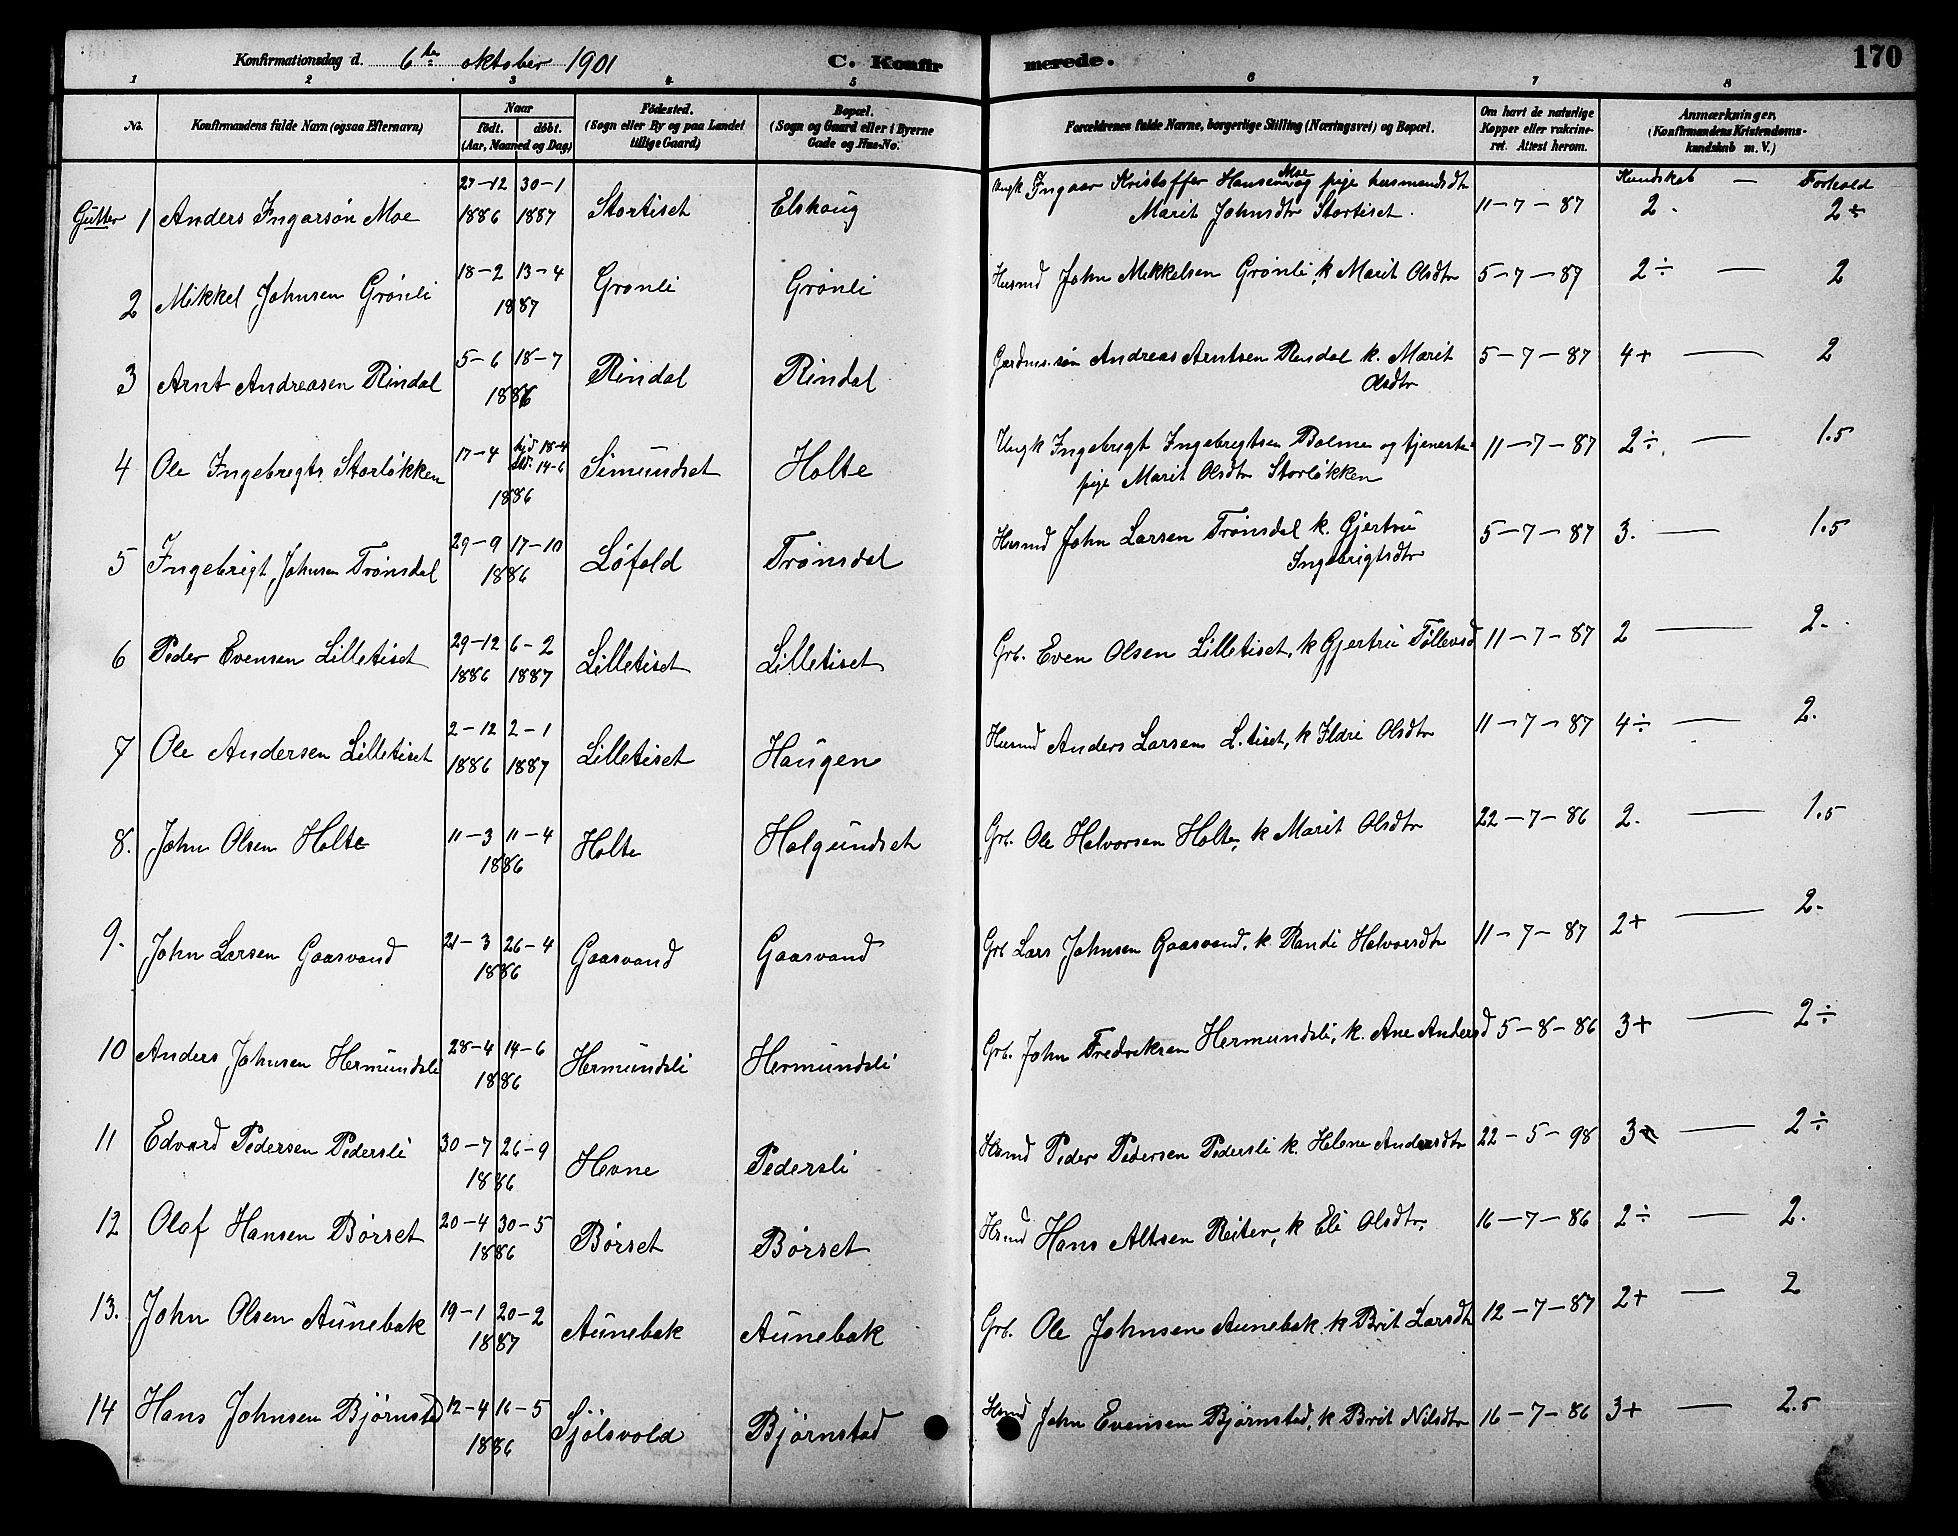 Konfirmationsdag d. 6te oktober 1901 C. Konfirmerede. 170
1 2 3 4 5 6 7 8
No. Konfirmandens fulde Navn (ogsaa Efternavn) Naar født. døbt. (Aar, Maaned og Dag) Fødested. (Sogn eller By og paa Landet tillige Gaard) Bopæl. (Sogn og Gaard eller i Byerne Gade og Hus-No. Forældrenes fulde Navne, borgerlige Stilling (Næringsvei) og Bopæl. Om havt de naturlige Kopper eller vakcineret. Attest herom. Anmærkninger. (Konfirmandens Kristendomskundskab m. V.)
Kundskab — Forhold
Gutter 1 Anders Ingarsøn Moe 27-12 1886 30-1 1887 Stortiset Elshaug Ungk Ingaar Kristoffer Hansen Moe og pige husmandsdtr Marit Johnsdtr Stortiset. 11-7-87 2. 2÷
2 Mikkel Johnsen Grønli 18-2 13-4 1887 Grønli Grønli Husmd John Mikkelsen Grønli, k Marit Olsdtr 5-7-87 2÷ — 2
3 Arnt Andreasen Rindal 5-6 18-7 1886 Rindal Rindal Gardms.søn Andreas Arntsen Rindal k. Marit Olsdtr 5-7-87 4+ — 2
4 Ole Ingebregts. Storløkken 17-4 hjd 18-4 14-6 1886 Simundset Holte Ungk Ingebregt Ingebregtsen Bolme og tjeneste pige Marit Olsdtr Storløkken 11-7-87 2÷. — 1.5
5 Ingebrigt Johnsen Trønsdal 29-9 17-10 1886 Løfald Trønsdal Husmd John Larsen Trønsdal k. Gjertru Ingebrigtsdtr 5-7-87 3. — 1.5
6 Peder Evensen Lilletiset 29-12 1886 6-2 1887 Lilletiset Lilletiset Grb. Even Olsen Lilletiset, k Gjertru Tøllevsd 11-7-87 2 — 2.
7 Ole Andersen Lilletiset 2-12 1886 2-1 1887 Lilletiset Haugen Husmd Anders Larsen L.tiset, k Ildri Olsdtr 11-7-87 4÷ — 2.
8. John Olsen Holte 11-3 11-4 1886 Holte Halgundset Grb. Ole Halvorsen Holte, k Marit Olsdtr 22-7-86 2. — 1.5
9. John Larsen Gaasvand 21-3 26-4 1886 Gaasvand Gaasvand Grb Lars Johnsen Gaasvand, k. Randi Halvorsdtr 11-7-87 2+ — 2.
10 Anders Johnsen Hermundsli 28-4 14-6 1886 Hermundsli Hermundsli Grb. John Fredriksen Hermundsli, k. Ane Andersd 5-8-86 3+ — 2÷
11 Edvard Pedersen Pedersli 30-7 26-9 1886 Hevne Pedersli Hsmd Peder Pedersen Pedersli k. Helene Andersdtr 22-5-98 3 — 2÷
12 Olaf Hansen Børset 20-4 30-5 1886 Børset Børset Hsmd Hans Altsen Reiter, k Eli Olsdtr. 16-7-86 2÷ — 2.
13. John Olsen Aunebak 19-1 20-2 1887 Aunebak Aunebak Grb. Ole Johnsen Aunebak. k Brit Larsdtr 12-7-87 2+ — 2
14 Hans Johnsen Bjørnstad 12-4 16-5 1886 Sjølsvold Bjørnstad Hsmd John Evensen Bjørnstad, k Brit Nilsdtr 16-7-86 3+ — 2.5